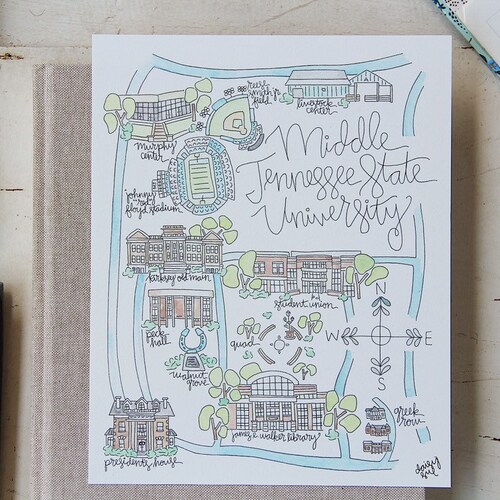 reese
smith jr.
field
livestock
center
murphy
center
Middle
Tennessee State
University
johnny
"red"
floyd stadium
kirksey old main
student union
N
W
E
S
peck
hall
quad
walnut
grove
greek
row
james e. walker library
presidents house